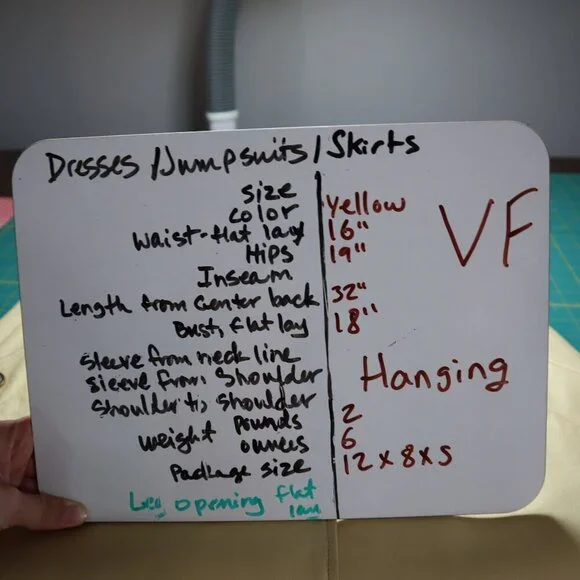 Dresses / Jumpsuits / Skirts
size
color yellow
waist-flat lay 16"
Hips 19"
VF
Inseam
Length from center back 32"
Bust, flat lay 18"
sleeve from neck line
sleeve from shoulder
Hanging
shoulder to shoulder
weight pounds 2
ounces 6
Package size 12 x 8 x 5
Leg opening flat
lay